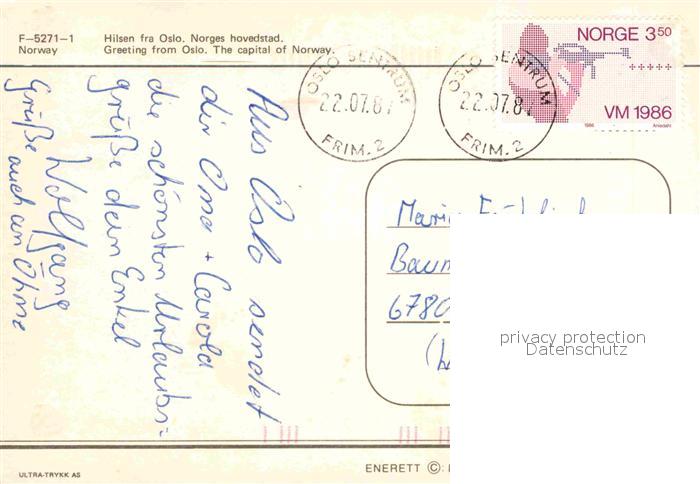 F-5271-1
Norway
Hilsen fra Oslo. Norges hovedstad.
Greeting from Oslo. The capital of Norway.
OSLO SENTRUM
22.07.87
FRIM. 2
OSLO SENTRUM
22.07.8
FRIM. 2
NORGE 350
VM 1986
1986
Aus Oslo sendet
dir Oma + Carola
die schönsten Urlaubs-
grüße dein Enkel
Wolfgang
Grüße
auch an Ohme
6780
privacy protection
Datenschutz
ULTRA-TRYKK AS
ENERETT ©: